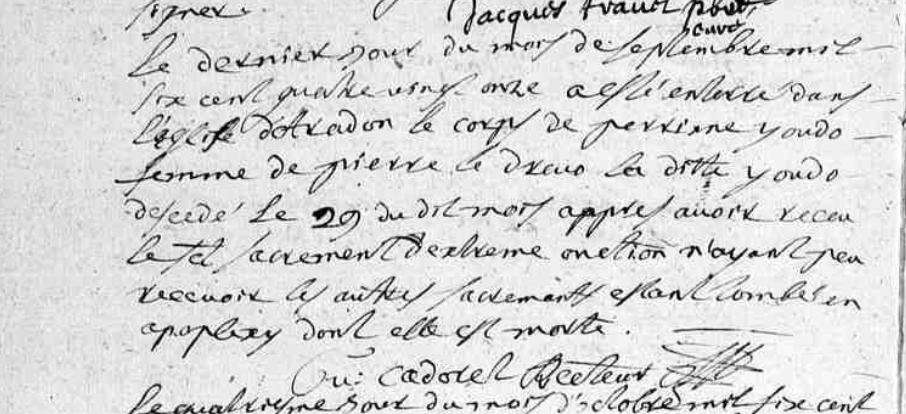 signer. Jacques travel pbre
curé
le dernier jour du mois de septembre mil
six cent quatre vingt onze a esté enterré dans
l'eglise d'Aradon le corps de perrinne youdo
femme de pierre le Dreuo la ditte youdo
desedé le 29 du dit mois appres avoir receu
le st sacrement d'extreme onction n'ayant peu
recevoir les autres sacrements estant tombé en
apoplexy dont elle est morte.
Cadoret Recteur
le quatriesme jour du mois d'octobre mil six cent